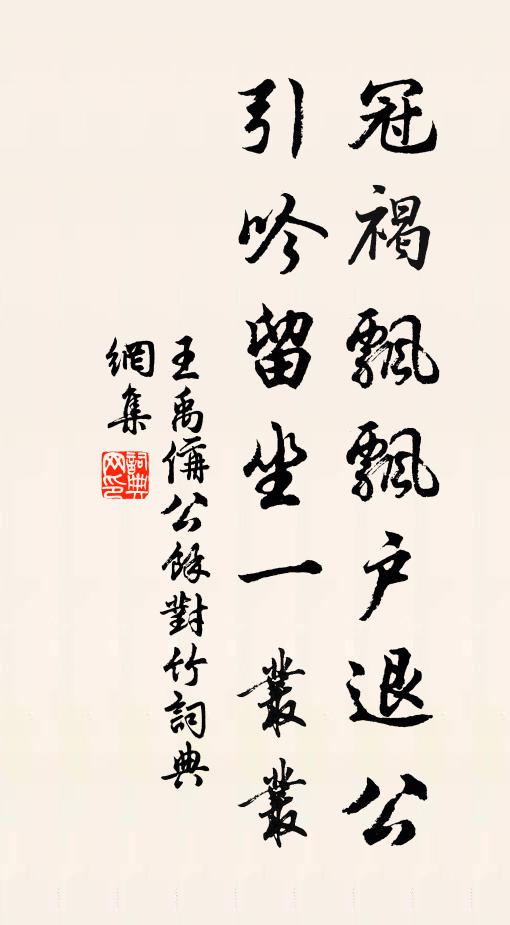 冠褐飄飄户退公
引吟留坐一叢叢
王禹偁公餘對竹詞典
網集
詞典
网印